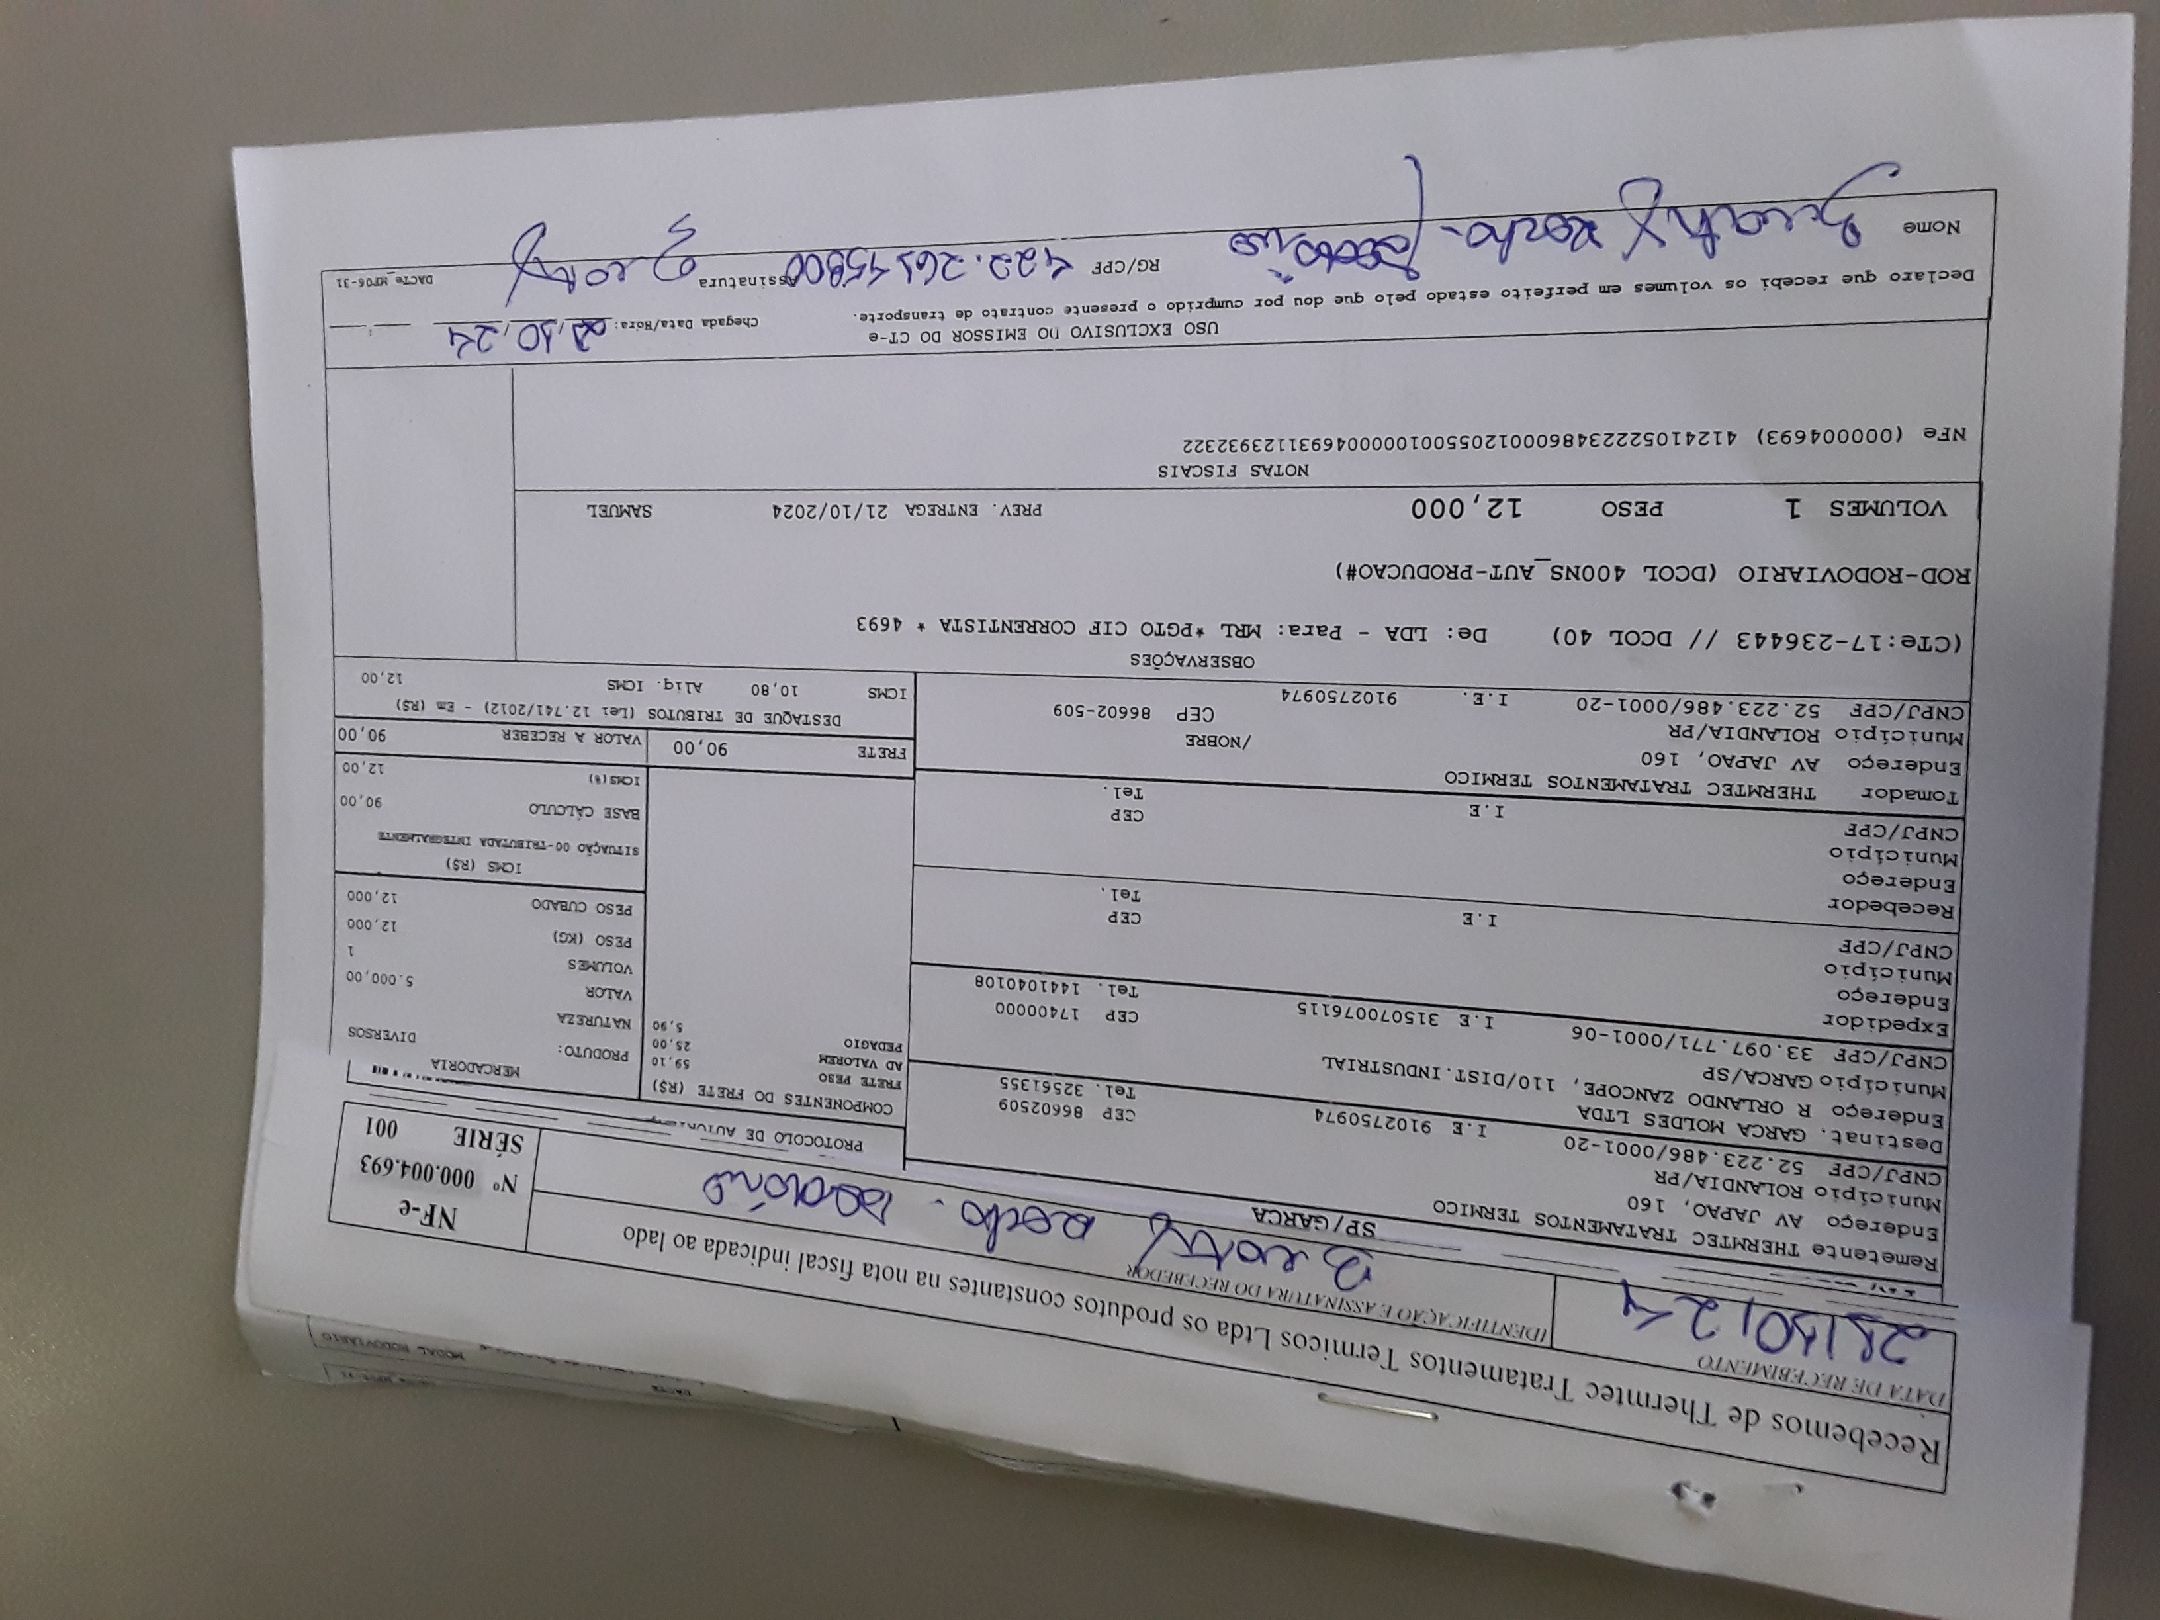 Recebemos de Thermtec Tratamentos Termicos Ltda os produtos constantes na nota fiscal indicada ao lado
DATA DE RECEBIMENTO
IDENTIFICAÇÃO E ASSINATURA DO RECEBEDOR
NF-e
Nº 000.004.693
SÉRIE 001
SP/GARCA
PROTOCOLO DE
Remetente THERMTEC TRATAMENTOS TERMICO
Endereço AV JAPAO, 160
Município ROLANDIA/PR CEP 86602509
CNPJ/CPF 52.223.486/0001-20 I.E 9102750974 Tel. 32561355
Destinat. GARCA MOLDES LTDA
Endereço R ORLANDO ZANCOPE, 110/DIST.INDUSTRIAL
Município GARCA/SP CEP 17400000
CNPJ/CPF 33.097.771/0001-06 I.E 315070076115 Tel. 1441040108
Expedidor
Endereço
Município CEP
CNPJ/CPF I.E Tel.
Recebedor
Endereço
Município CEP
CNPJ/CPF I.E Tel.
Tomador THERMTEC TRATAMENTOS TERMICO
Endereço AV JAPAO, 160 /NOBRE
Município ROLANDIA/PR CEP 86602-509
CNPJ/CPF 52.223.486/0001-20 I.E. 9102750974
COMPONENTES DO FRETE (R$)
FRETE PESO 59,10
AD VALOREM 25,00
PEDAGIO 5,90
MERCADORIA
PRODUTO: DIVERSOS
NATUREZA
VALOR 5.000,00
VOLUMES 1
PESO (KG) 12,000
PESO CUBADO 12,000
ICMS (R$)
SITUAÇÃO 00-TRIBUTADA INTEGRALMENTE
BASE CÁLCULO 90,00
ICMS(%) 12,00
FRETE 90,00 VALOR A RECEBER 90,00
DESTAQUE DE TRIBUTOS (Lei 12.741/2012) - Em (R$)
ICMS 10,80 Aliq. ICMS 12,00
OBSERVAÇÕES
(CTe:17-236443 // DCOL 40) De: LDA - Para: MRL *PGTO CIF CORRENTISTA * 4693
ROD-RODOVIARIO (DCOL 400NS_AUT-PRODUCAO#)
VOLUMES 1 PESO 12,000 PREV. ENTREGA 21/10/2024 SAMUEL
NOTAS FISCAIS
NFe (000004693) 41241052223486000120550010000046931123932322
USO EXCLUSIVO DO EMISSOR DO CT-e
Chegada Data/Hora:
Declaro que recebi os volumes em perfeito estado pelo que dou por cumprido o presente contrato de transporte.
Nome RG/CPF Assinatura
DACTe_MP06-31
MODAL RODOVIARIO